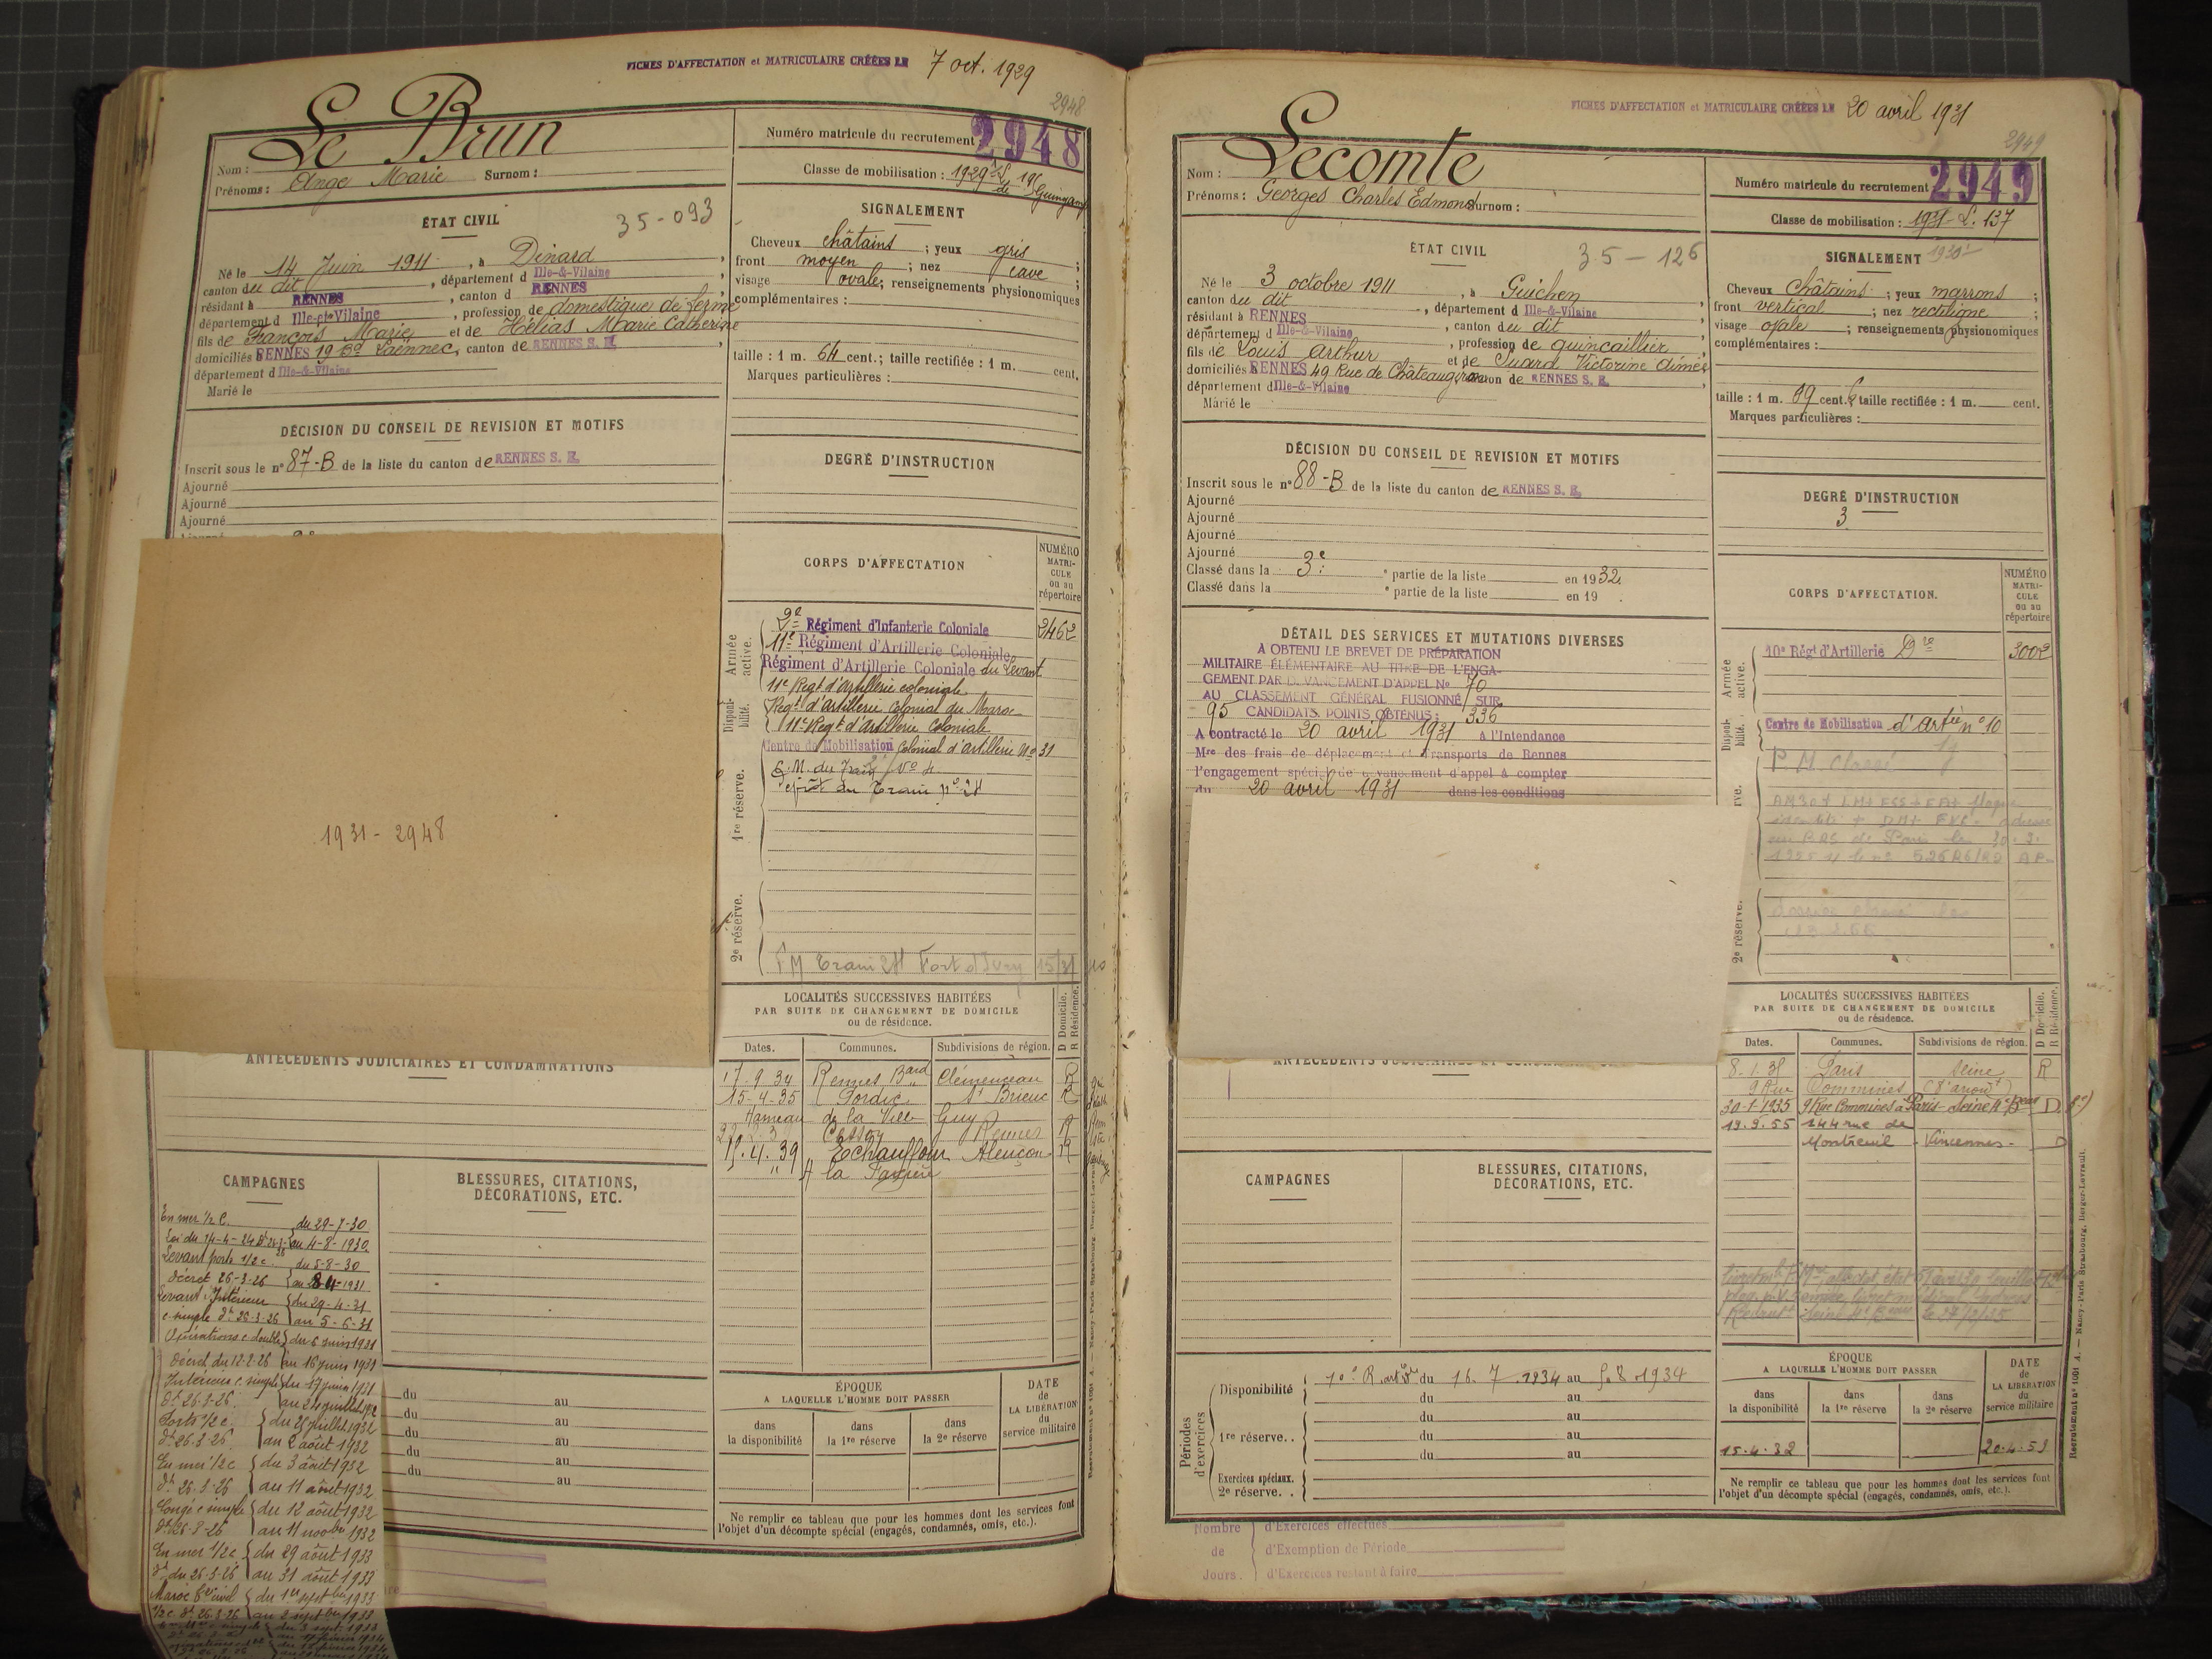 FICHES D'AFFECTATION et MATRICULAIRE CRÉÉES LE 7 oct. 1929
2948
Nom : Le Brun
Prénoms : Ange Marie Surnom :
Numéro matricule du recrutement 2948
Classe de mobilisation : 1929
Guingamp
ÉTAT CIVIL
35-093
Né le 14 Juin 1911, à Dinard,
canton du dit, département d Ille-&-Vilaine,
résidant à RENNES, canton d RENNES
département d Ille-et-Vilaine, profession de domestique de ferme
fils de François Marie et de Hélias Marie Catherine
domiciliés RENNES 19 Bd Laënnec, canton de RENNES S. E.,
département d Ille-&-Vilaine
Marié le
SIGNALEMENT
Cheveux châtains ; yeux gris ;
front moyen ; nez cave ;
visage ovale ; renseignements physionomiques
complémentaires :
taille : 1 m. 64 cent. ; taille rectifiée : 1 m. cent.
Marques particulières :
DÉCISION DU CONSEIL DE REVISION ET MOTIFS
Inscrit sous le n° 87-B de la liste du canton de RENNES S. E.
Ajourné
Ajourné
Ajourné
DEGRÉ D'INSTRUCTION
1931 - 2948
CORPS D'AFFECTATION
NUMÉRO MATRI-CULE ou au répertoire
Armée active.
2e Régiment d'Infanterie Coloniale 2462
11e Régiment d'Artillerie Coloniale
Régiment d'Artillerie Coloniale du Levant
11e Regt d'artillerie coloniale
Disponi-bilité.
Regt d'artillerie Colonial du Maroc
11e Regt d'artillerie Coloniale
Centre de Mobilisation Colonial d'artillerie No 31
1re réserve.
C. M. du Train No 4
Dépôt du Train n° 24
2e réserve.
FM Train 24 Fort d'Ivry
LOCALITÉS SUCCESSIVES HABITÉES
PAR SUITE DE CHANGEMENT DE DOMICILE
ou de résidence.
D Domicile. R Résidence.
Dates. Communes. Subdivisions de région.
17.9.34 Rennes Bard Clémenceau R
15-4-35 Pordic St Brieuc R
Hameau de la Ville Guy
Cesson Rennes R
15.4.39 Echauffour Alençon R
ANTÉCÉDENTS JUDICIAIRES ET CONDAMNATIONS
CAMPAGNES
BLESSURES, CITATIONS,
DÉCORATIONS, ETC.
En mer 1/2 C. du 29-7-30
Loi du 14-4-24 au 4-8-1930
Levant ports 1/2 c. du 5-8-30
Décret 26-3-26
Levant Intérieur du 29-4-31
c. simple Dt 26-3-26 au 5-6-31
Opérations c. double du 6 juin 1931
Décret du 12-2-26 au 16 juin 1931
Intérieur c. simple du 17 juin 1931
Dt 26-3-26 au 24 juillet 1932
Ports 1/2 c. du 25 juillet 1932
Dt 26-3-26 au 2 août 1932
En mer 1/2 c du 3 août 1932
Dt 26-3-26 au 11 août 1932
Congé c simple du 12 août 1932
Dt 26-3-26 au 11 novbre 1932
En mer 1/2 c du 29 août 1933
Dt du 26-3-26 au 31 août 1933
Maroc du 1er septbre 1933
1/2 c. Dt 26-3-26 au 2 septbre 1933
du 3 sept. 1933
du au
du au
du au
du au
du au
ÉPOQUE
A LAQUELLE L'HOMME DOIT PASSER
DATE de LA LIBÉRATION du service militaire
dans la disponibilité dans la 1re réserve dans la 2e réserve
Ne remplir ce tableau que pour les hommes dont les services font
l'objet d'un décompte spécial (engagés, condamnés, omis, etc.).
FICHES D'AFFECTATION et MATRICULAIRE CRÉÉES LE 20 avril 1931
2949
Nom : Lecomte
Prénoms : Georges Charles Edmond Surnom :
Numéro matricule du recrutement 2949
Classe de mobilisation : 1931 L. 137
ÉTAT CIVIL
35-126
Né le 3 octobre 1911, à Guichen,
canton du dit, département d Ille-&-Vilaine,
résidant à RENNES, canton du dit,
département d Ille-&-Vilaine, profession de quincaillier,
fils de Louis Arthur et de Suard Victorine Aimée
domiciliés RENNES 49 Rue de Châteaugiron canton de RENNES S. E.
département d Ille-&-Vilaine
Marié le
SIGNALEMENT
Cheveux Châtains ; yeux marrons ;
front vertical ; nez rectiligne ;
visage ovale ; renseignements physionomiques
complémentaires :
taille : 1 m. 69 cent. ; taille rectifiée : 1 m. cent.
Marques particulières :
DÉCISION DU CONSEIL DE REVISION ET MOTIFS
Inscrit sous le n° 88-B de la liste du canton de RENNES S. E.
Ajourné
Ajourné
Ajourné
Ajourné
Classé dans la 3e partie de la liste en 1932
Classé dans la e partie de la liste en 19 .
DEGRÉ D'INSTRUCTION
3
DÉTAIL DES SERVICES ET MUTATIONS DIVERSES
A OBTENU LE BREVET DE PRÉPARATION
MILITAIRE ÉLÉMENTAIRE AU TITRE DE L'ENGA-
GEMENT PAR DEVANCEMENT D'APPEL No 70
AU CLASSEMENT GÉNÉRAL FUSIONNÉ SUR
95 CANDIDATS. POINTS OBTENUS : 336
A contracté le 20 avril 1931 à l'Intendance
Mre des frais de déplacement et Transports de Rennes
l'engagement spécial de devancement d'appel à compter
du 20 avril 1931 dans les conditions
CORPS D'AFFECTATION.
NUMÉRO MATRI-CULE ou au répertoire
Armée active.
10e Régt d'Artillerie Dre 3002
Disponi-bilité.
Centre de Mobilisation d'Artie n° 10
P M Classé
2e réserve.
LOCALITÉS SUCCESSIVES HABITÉES
PAR SUITE DE CHANGEMENT DE DOMICILE
ou de résidence.
D Domicile. R Résidence.
Dates. Communes. Subdivisions de région.
8.1.35 Paris Seine R
9 Rue Commines (3e arrondt)
30-1-1935 9 Rue Commines à Paris Seine 4e Beau D
19.9.55 144 rue de
Montreuil Vincennes D
ANTÉCÉDENTS JUDICIAIRES ET CONDAMNATIONS
CAMPAGNES
BLESSURES, CITATIONS,
DÉCORATIONS, ETC.
Périodes d'exercices
Disponibilité 10e R. art. du 16.7.1934 au 5.8.1934
du au
1re réserve.. du au
du au
du au
Exercices spéciaux.
2e réserve. .
ÉPOQUE
A LAQUELLE L'HOMME DOIT PASSER
DATE de LA LIBÉRATION du service militaire
dans la disponibilité dans la 1re réserve dans la 2e réserve
15.4.32 20.4.59
Ne remplir ce tableau que pour les hommes dont les services font
l'objet d'un décompte spécial (engagés, condamnés, omis, etc.).
Nombre de Jours.
d'Exercices effectués
d'Exemption de Période
d'Exercices restant à faire
Recrutement n° 1061 A. — Nancy-Paris-Strasbourg, Berger-Levrault.